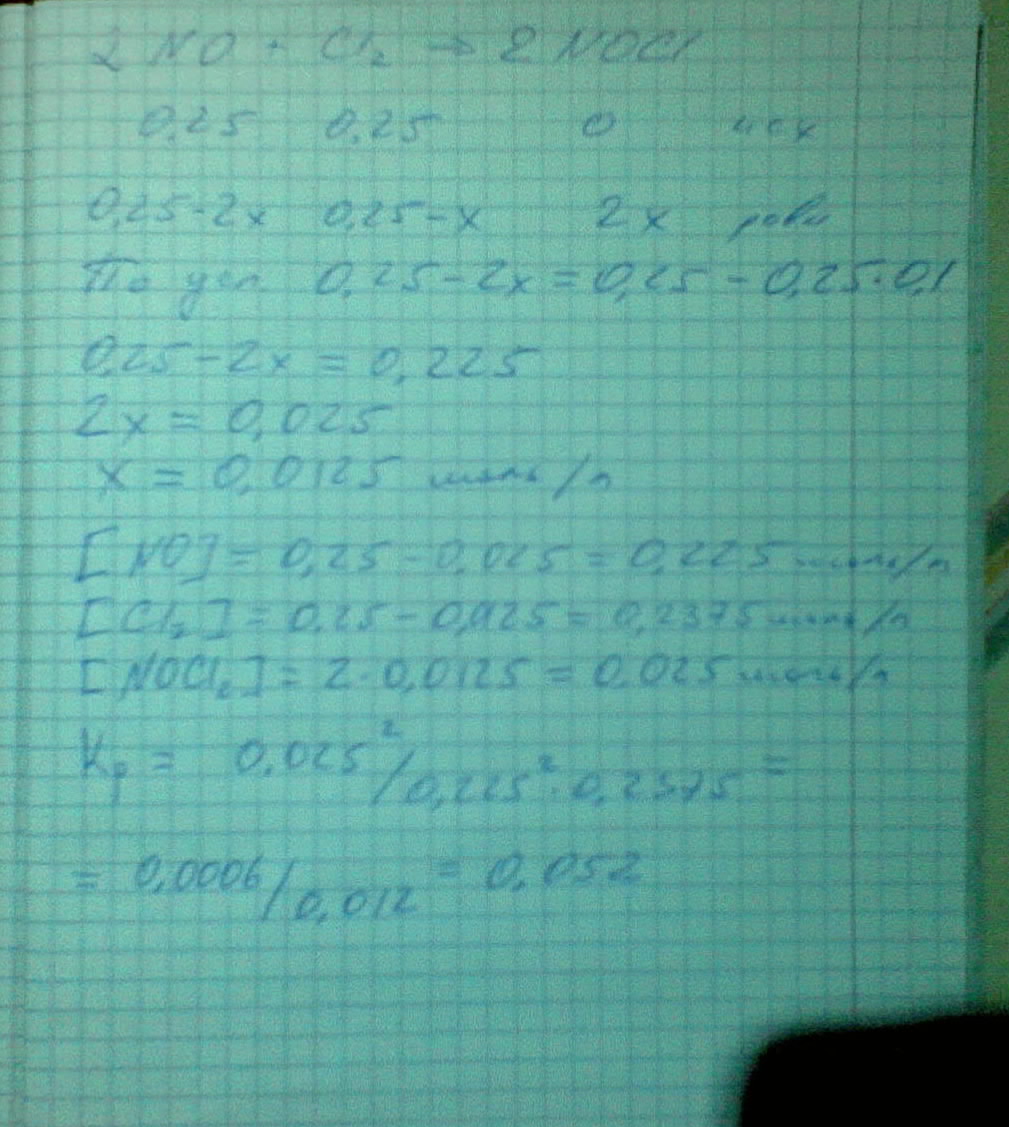 2 NO + Cl₂ → 2 NOCl
0,25 0,25 0 исх
0,25-2x 0,25-x 2x равн
По усл 0,25-2x = 0,25 - 0,25·0,1
0,25-2x = 0,225
2x = 0,025
x = 0,0125 моль/л
[NO] = 0,25-0,025 = 0,225 моль/л
[Cl₂] = 0,25-0,0125 = 0,2375 моль/л
[NOCl₂] = 2·0,0125 = 0,025 моль/л
Kp = 0,025²/0,225²·0,2375 =
= 0,0006/0,012 = 0,052